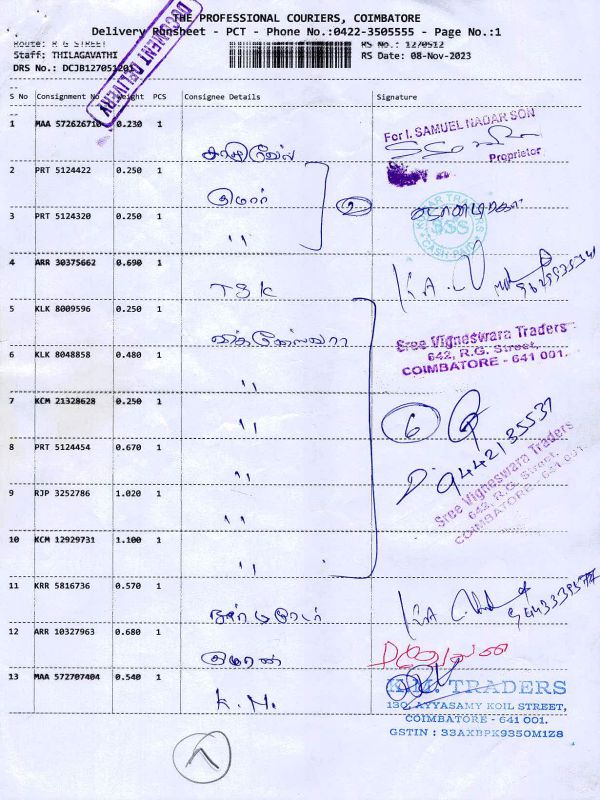 THE PROFESSIONAL COURIERS, COIMBATORE
Delivery Runsheet - PCT - Phone No.:0422-3505555 - Page No.:1
Route: R G STREET
RS No.: 1270512
Staff: THILAGAVATHI
RS Date: 08-Nov-2023
DRS No.: DCJB127051201
DOCUMENT DELIVERY
S No Consignment No Weight PCS Consignee Details Signature
1 MAA 572626710 0.230 1
For I. SAMUEL NADAR SON
Proprietor
2 PRT 5124422 0.250 1 குமார்
2
3 PRT 5124320 0.250 1 "
SSS
4 ARR 30375662 0.690 1 TSK
5 KLK 8009596 0.250 1
Sree Vigneswara Traders
642, R.G. Street,
COIMBATORE - 641 001.
6 KLK 8048858 0.480 1 "
7 KCM 21328628 0.250 1 "
6
9442135537
8 PRT 5124454 0.670 1 "
Sree Vigneswara Traders
642, R.G. Street,
COIMBATORE - 641 001
9 RJP 3252786 1.020 1 "
10 KCM 12929731 1.100 1 "
11 KRR 5816736 0.570 1
12 ARR 10327963 0.680 1 குமரன்
13 MAA 572707404 0.540 1 K.M.
K.M. TRADERS
130, AYYASAMY KOIL STREET,
COIMBATORE - 641 001.
GSTIN : 33AXBPK9350M1Z8